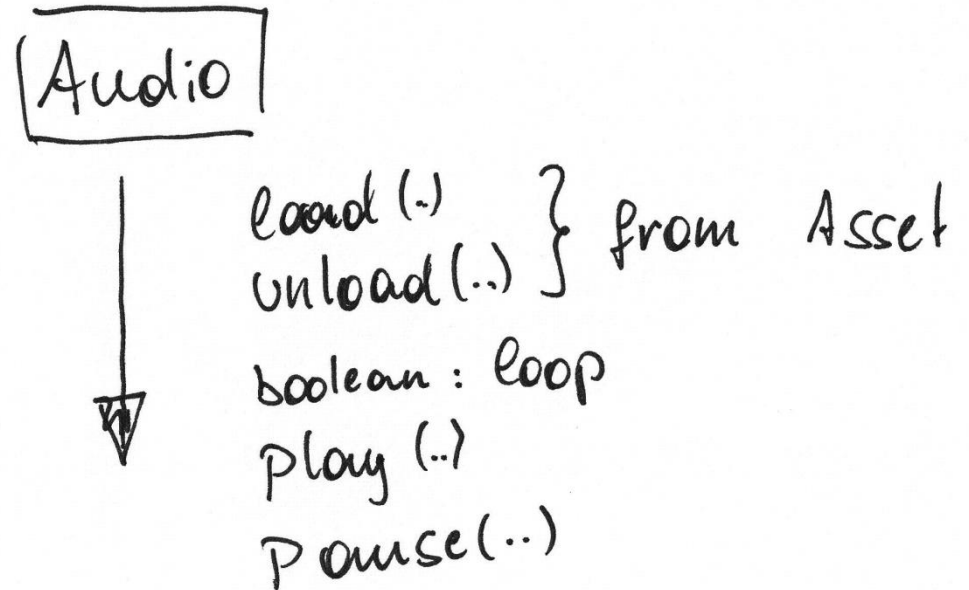 Audio
load (..)
unload (..) } from Asset
boolean : loop
play (..)
pause (..)